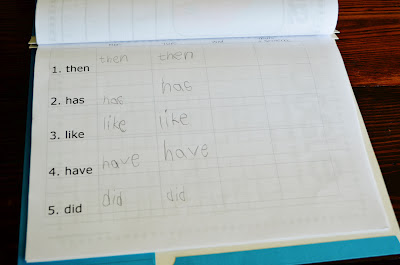 1. then then then
2. has has has
3. like like like
4. have have have
5. did did did